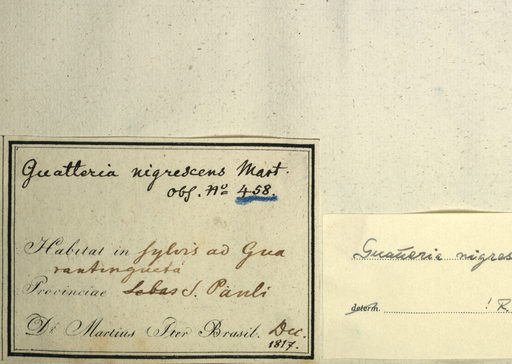 Guatteria nigrescens Mart.
Obs. No 458.
Habitat in sylvis ad Gua
rantinguetá
Provinciae S. Pauli
Dr Martius Iter Brasil. Dec.
1817.
Guatteria nigres
determ. ! R.